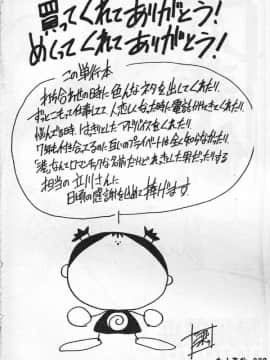 買ってくれてありがとう!
めくってくれてありがとう!
この単行本
打ち合わせの時に色んなネタを出してくれたり
ずっとこもって仕事してて人恋しくなった時に電話に付き合ってくれたり
悩んでる時、はきはきとしたアドバイスをくれたり
7年も付き合ってるのに互いのプライベートは全く知らなかったり
なんてロマンチックな名前だけどあきらか男だったりする
担当の立川さんに
日頃の感謝を込めて捧げます